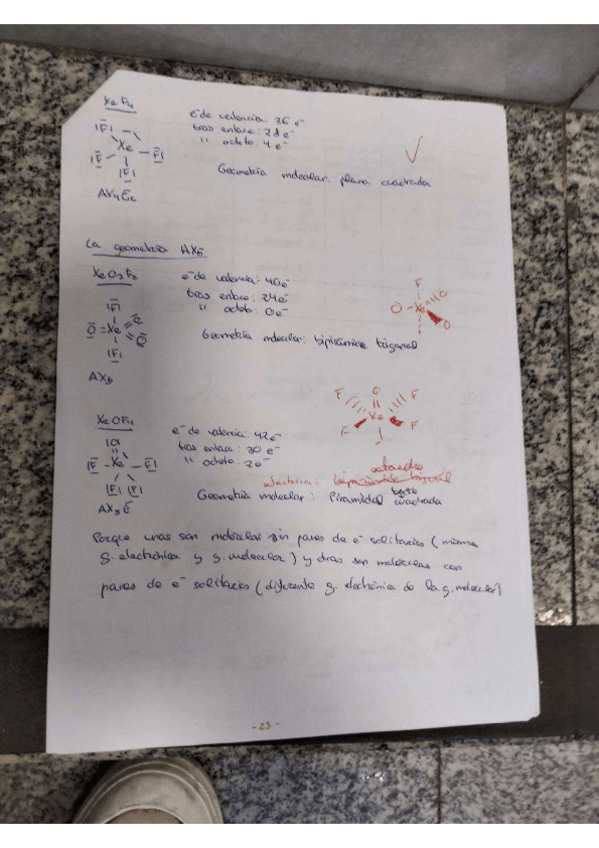 XeF4
e⁻ de valencia: 36 e⁻
tras enlace: 28 e⁻
" octeto: 4 e⁻
|F|
Xe
|F| F|
|F|
Geometría molecular: plana cuadrada
AX4E2
La geometría AX5
XeO3F2
e⁻ de valencia: 40 e⁻
tras enlace: 24 e⁻
" octeto: 0 e⁻
|F|
O=Xe=O
=O
|F|
F
O-Xe O
O
Geometría molecular: bipirámide trigonal
AX5
XeOF4
e⁻ de valencia: 42 e⁻
tras enlace: 30 e⁻
" octeto: 2 e⁻
|O|
|F -Xe- F|
|F| |F|
O
F F
Xe
F F
octaedro
electrónica: bipirámide trigonal
base
Geometría molecular: Piramidal cuadrada
AX5E
Porque unas son moléculas sin pares de e⁻ solitarios (misma
g. electrónica y g. molecular) y otras son moléculas con
pares de e⁻ solitarios (diferente g. electrónica de la g. molecular)
-23-